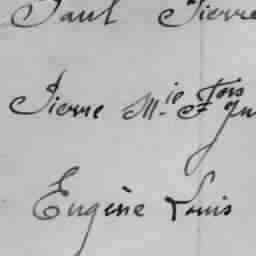 Paul Pierre
Pierre M.ie Fois
Eugène Louis